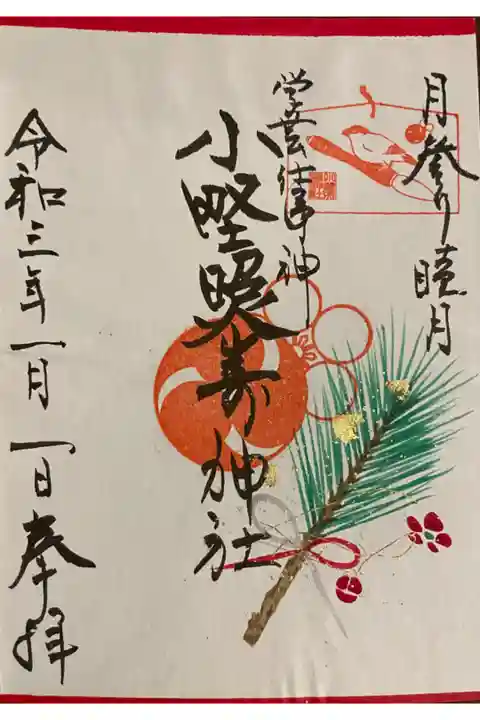 月参り睦月
学芸仕事神
小野照崎神社
令和三年一月一日奉拝